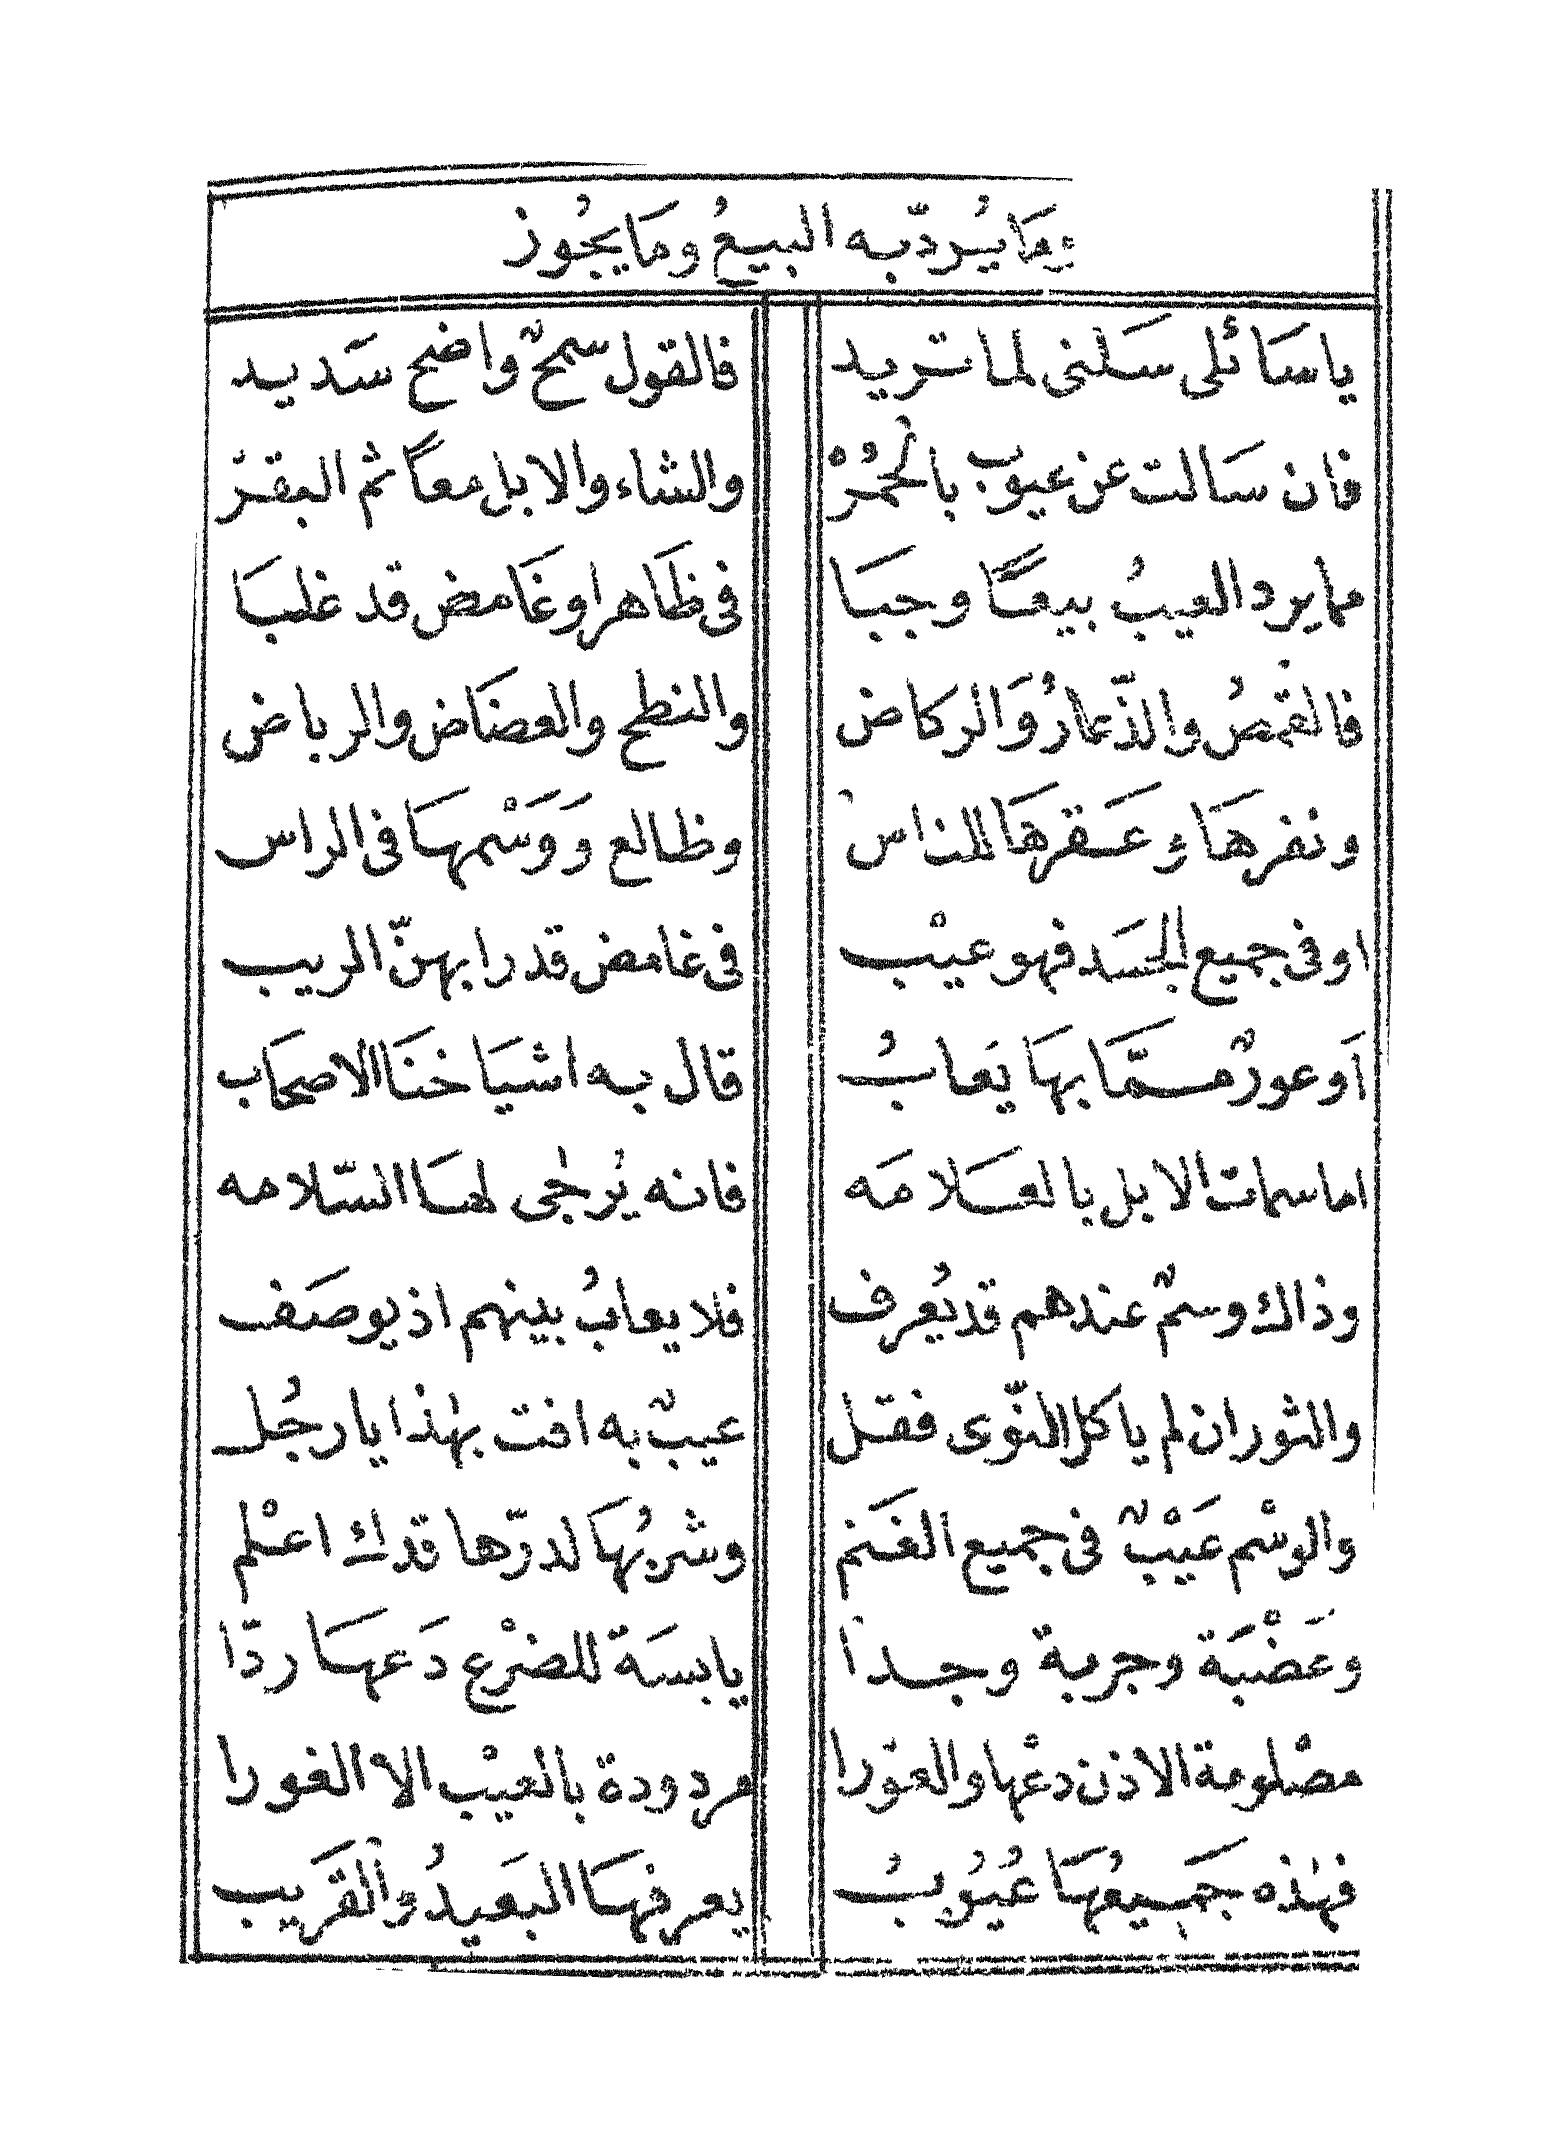 وما يُردّ به البيعُ وما يجُوز
ياسَائلى سَلنى لما تريد فالقول سمحٌ واضح سَديد
فان سَالت عن عيوب بالحمُرْ والشاء والابل معاً ثم البقرْ
مما يرد العيبُ بيعًا وجبَا فى ظاهر او غَامض قد غلبَا
فالقمْصُ والذّعارُ وَالركاض والنطح والعضَاض والرباض
ونفرهَا وعَقرهَا للناس وظالع وَوَسْمهَا فى الراس
او فى جميع الجسَد فهو عيْب فى غامض قد رابهنّ الريب
اَو عورٌ ممَّا بهَا يَعابُ قال به اشيَاخنَا الاصحَاب
اما سمات الابل بالعَلامَه فانه يُرجٰى لهَا السّلامه
وذاك وسمٌ عندهم قد يُعرف فلا يعابُ بينهم اذ يوصَف
والثور ان لم ياكل النّوى فقل عيبٌ به افت بهٰذا يا رجُل
والوسْم عَيْبٌ فى جميع الغَنم وشربُهَا لدرّها قدك اعْلم
وعَضْبَة وجربة وجدا يابسَة للضرْع دَعهَا ردّا
مصْلومة الاذن دعْها والعوْرا مردودة بالعيْب الا الغورا
فهٰذه جَميعُهَا عُيُوبُ يعرفهَا البَعيدُ والقَريب